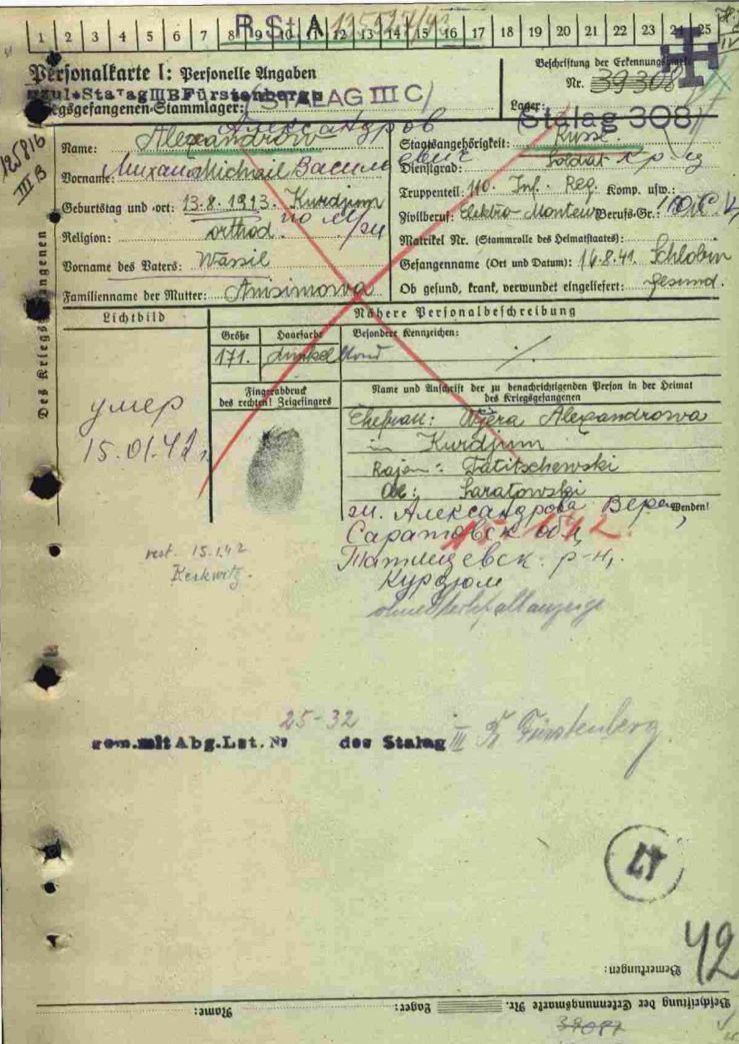 1 2 3 4 5 6 7 8 9 10 11 12 13 14 15 16 17 18 19 20 21 22 23 24 25
R.St.A
IV
Personalkarte I: Personelle Angaben
Beschriftung der Erkennungsmarke
Nr. 39308
Kriegsgefangenen-Stammlager: STALAG III C
Lager: Stalag 308
125816
III B
Александров
Name: Alexandrow
Staatsangehörigkeit: Russe.
Михаил Васильевич
Vorname: Michail
Dienstgrad: Soldat кр-ц
Geburtstag und -ort: 13.8.1913. Kurdjum
Truppenteil: 110. Inf. Reg. Komp. usw.:
Religion: orthod.
Zivilberuf: Elektro-Monteur Berufs-Gr.:
Matrikel Nr. (Stammrolle des Heimatstaates):
Vorname des Vaters: Wassil
Gefangennahme (Ort und Datum): 16.8.41. Schlobin
Familienname der Mutter: Anisimowa
Ob gesund, krank, verwundet eingeliefert: gesund.
Des Kriegsgefangenen
Lichtbild
Nähere Personalbeschreibung
Größe
Haarfarbe
Besondere Kennzeichen:
171.
dunkelblond
Fingerabdruck
des rechten! Zeigefingers
Name und Anschrift der zu benachrichtigenden Person in der Heimat
des Kriegsgefangenen
умер
15.01.42 г.
Ehefrau: Wjera Alexandrowa
in Kurdjum
Rajon: Tatitschewski
Obl: Saratowski
Wenden!
Александрова Вера
Саратовск обл,
Татищевск. р-н,
Курдюм
15.1.42
Kerkwitz.
25-32
gem.mit Abg.Lst. Nr des Stalag III B Fürstenberg
17
42
Bemerkungen:
Beschriftung der Erkennungsmarke Nr. Lager: Name: